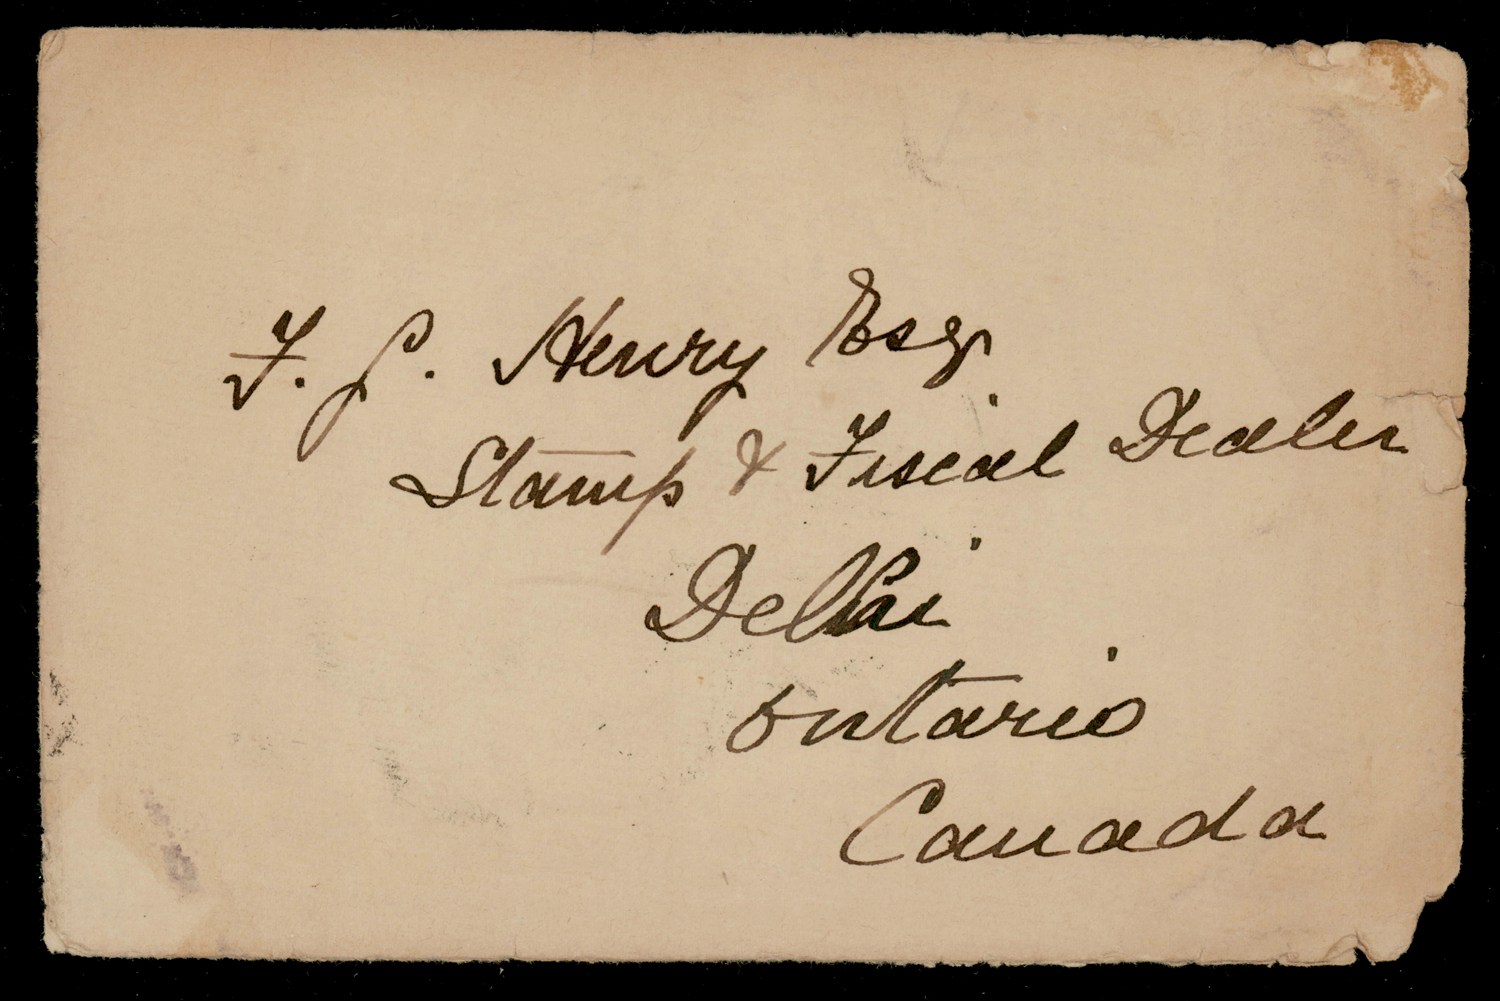 F. J. Henry Esqr
Stamp & Fiscal Dealer
Delhi
Ontario
Canada